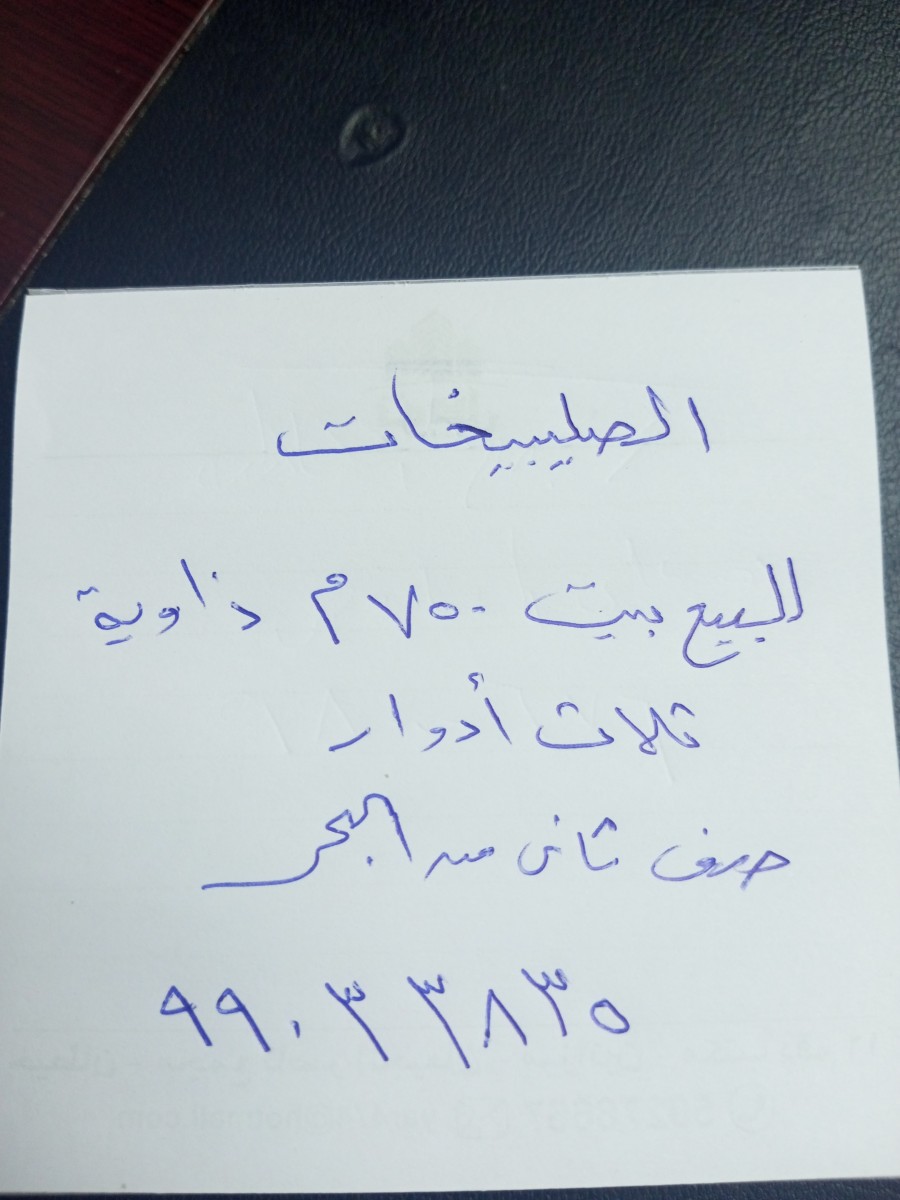 الصليبيخات
للبيع بيت ٧٥٠ م زاوية
ثلاث أدوار
صف ثاني من البحر
٩٩٠٣٣٨٣٥